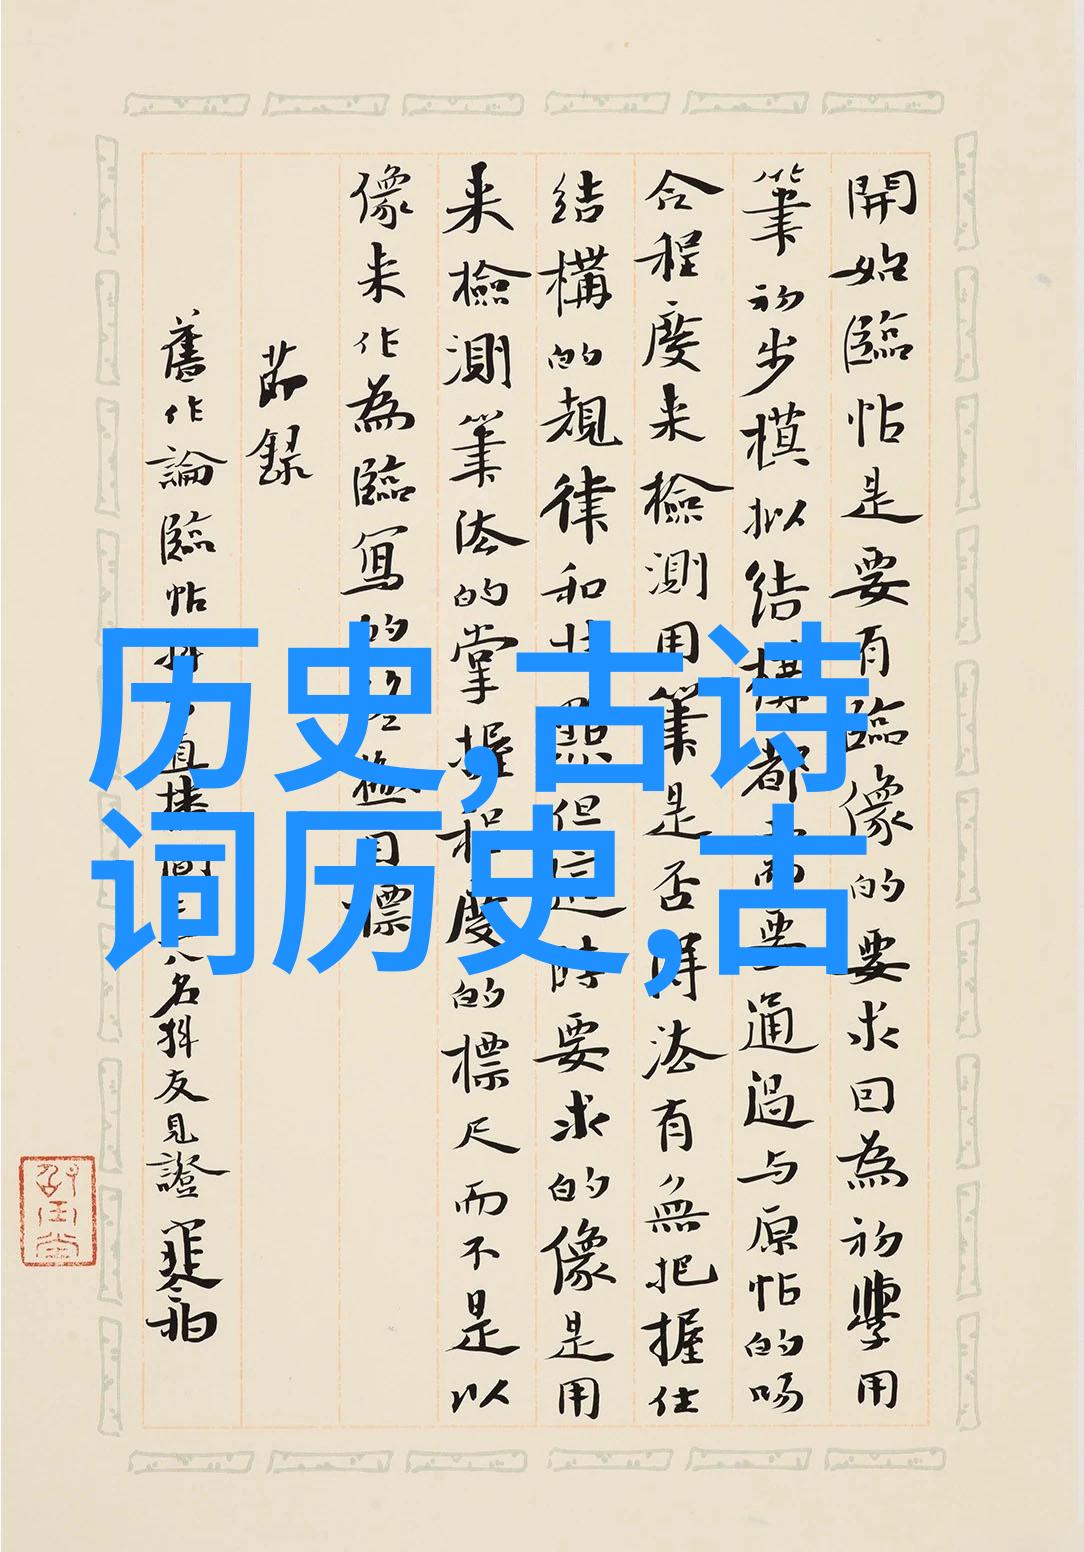 開始臨帖是要有臨像的要求因為初學用
筆初步模拟结構都需要通過与原帖的吻
合程度来檢測用筆是否得法有無把握住
结構的規律和但這時要求的像是用
来檢測筆法的掌握和度的標尺而不是以
像来作為臨寫的終極目標
節録
舊作論臨帖抖音直播間八名抖友見證
历史,古诗
词历史,古